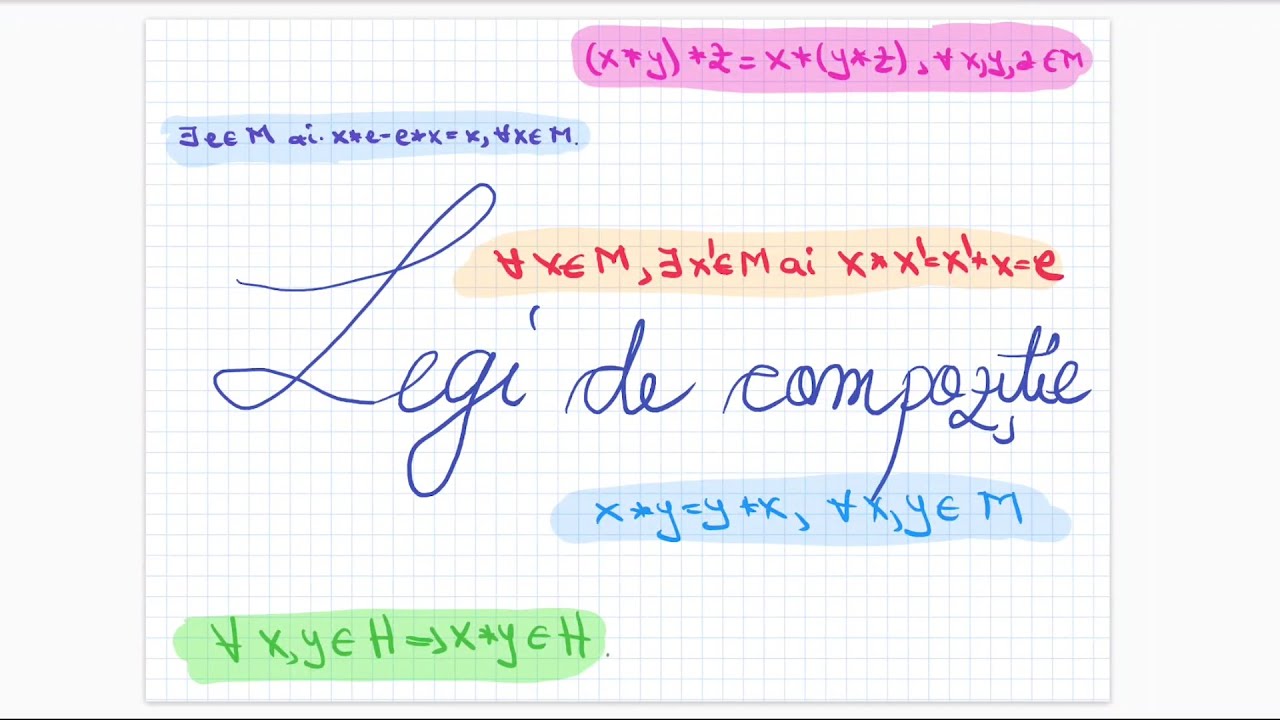 (x*y)*z=x*(y*z), ∀x,y,z∈M
∃e∈M ai. x*e=e*x=x, ∀x∈M.
∀x∈M, ∃x'∈M ai x*x'=x'*x=e
Legi de compoziție
x*y=y*x, ∀x,y∈M
∀x,y∈H=>x*y∈H.